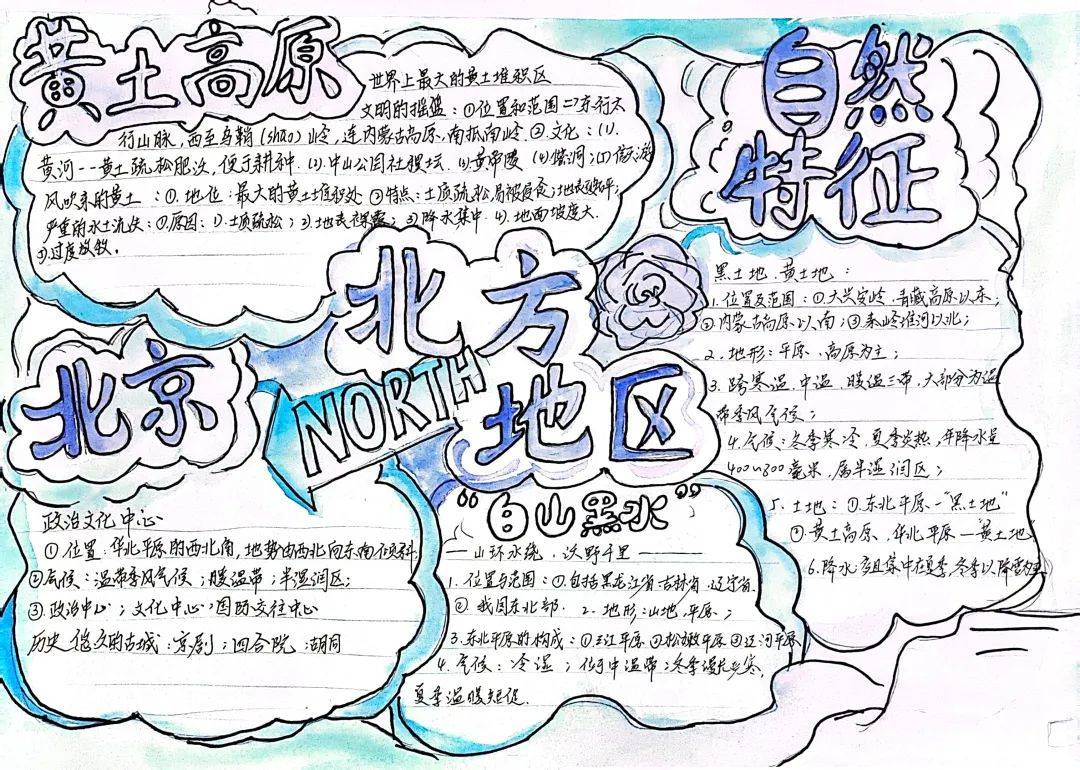 黄土高原
世界上最大的黄土堆积区
文明的摇篮：①位置和范围=>东行太
行山脉，西至乌鞘(shao)岭，连内蒙古高原，南抵南岭．②．文化：(1)．
黄河--黄土疏松肥沃，便于耕种．(2)．中山公园社稷坛．(3)黄帝陵 (4)窑洞；(5)信天游
风吹来的黄土：①．地位：最大的黄土堆积处 ②特点：土质疏松，易被侵食；地表
严重的水土流失：①．原因：1)．土质疏松；2)．地表裸露；3)降水集中．4)．地面坡度大．
5)．过度放牧．
北方
地区
NORTH
自然
特征
黑土地、黄土地：
1．位置及范围：①大兴安岭、青藏高原以东；
②内蒙古高原以南；③秦岭淮河以北；
2．地形：平原、高原为主；
3．跨寒温、中温、暖温三带，大部分为温
带季风气候；
4．气候：冬季寒冷，夏季炎热，年降水量
400~800毫米，属半湿润区；
5．土地：①．东北平原-“黑土地”
②．黄土高原、华北平原—“黄土地”
6．降水多且集中在夏季，冬季以降雪为主
北京
政治文化中心
①位置：华北平原的西北角，地势由西北向东南倾斜
②气候：温带季风气候；暖温带；半湿润区；
③．政治中心；文化中心；国际交往中心
历史悠久的古城：京剧；四合院；胡同
“白山黑水”
—山环水绕，沃野千里——
1．位置与范围：①包括黑龙江省、吉林省、辽宁省．
②．我国东北部． 2．地形：山地、平原；
3．东北平原的构成：①三江平原②松嫩平原③辽河平原
4．气候：冷湿；位于中温带：冬季漫长严寒，
夏季温暖短促．